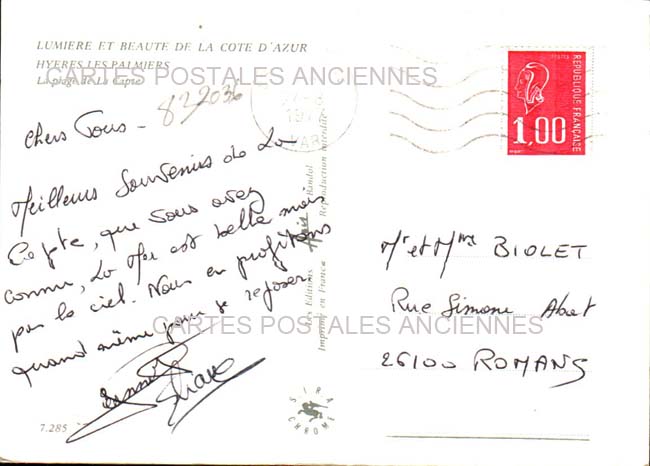 LUMIERE ET BEAUTE DE LA COTE D'AZUR
HYERES LES PALMIERS
La plage de La Capte
CARTES POSTALES ANCIENNES
822036
Chers Tous -
Meilleurs Souvenirs de La
Capte, que vous avez
connu, La Mer est belle mais
pas le ciel. Nous en profitons
quand même pour se reposer.
CARTES POSTALES ANCIENNES
7.285
Les Editions Bandol
Imprimé en France Reproduction interdite
SIRA
CHROME
197
VAR
REPUBLIQUE FRANÇAISE
POSTES
1,00
Mr et Mme BIOLET
Rue Simone Abat
26100 ROMANS